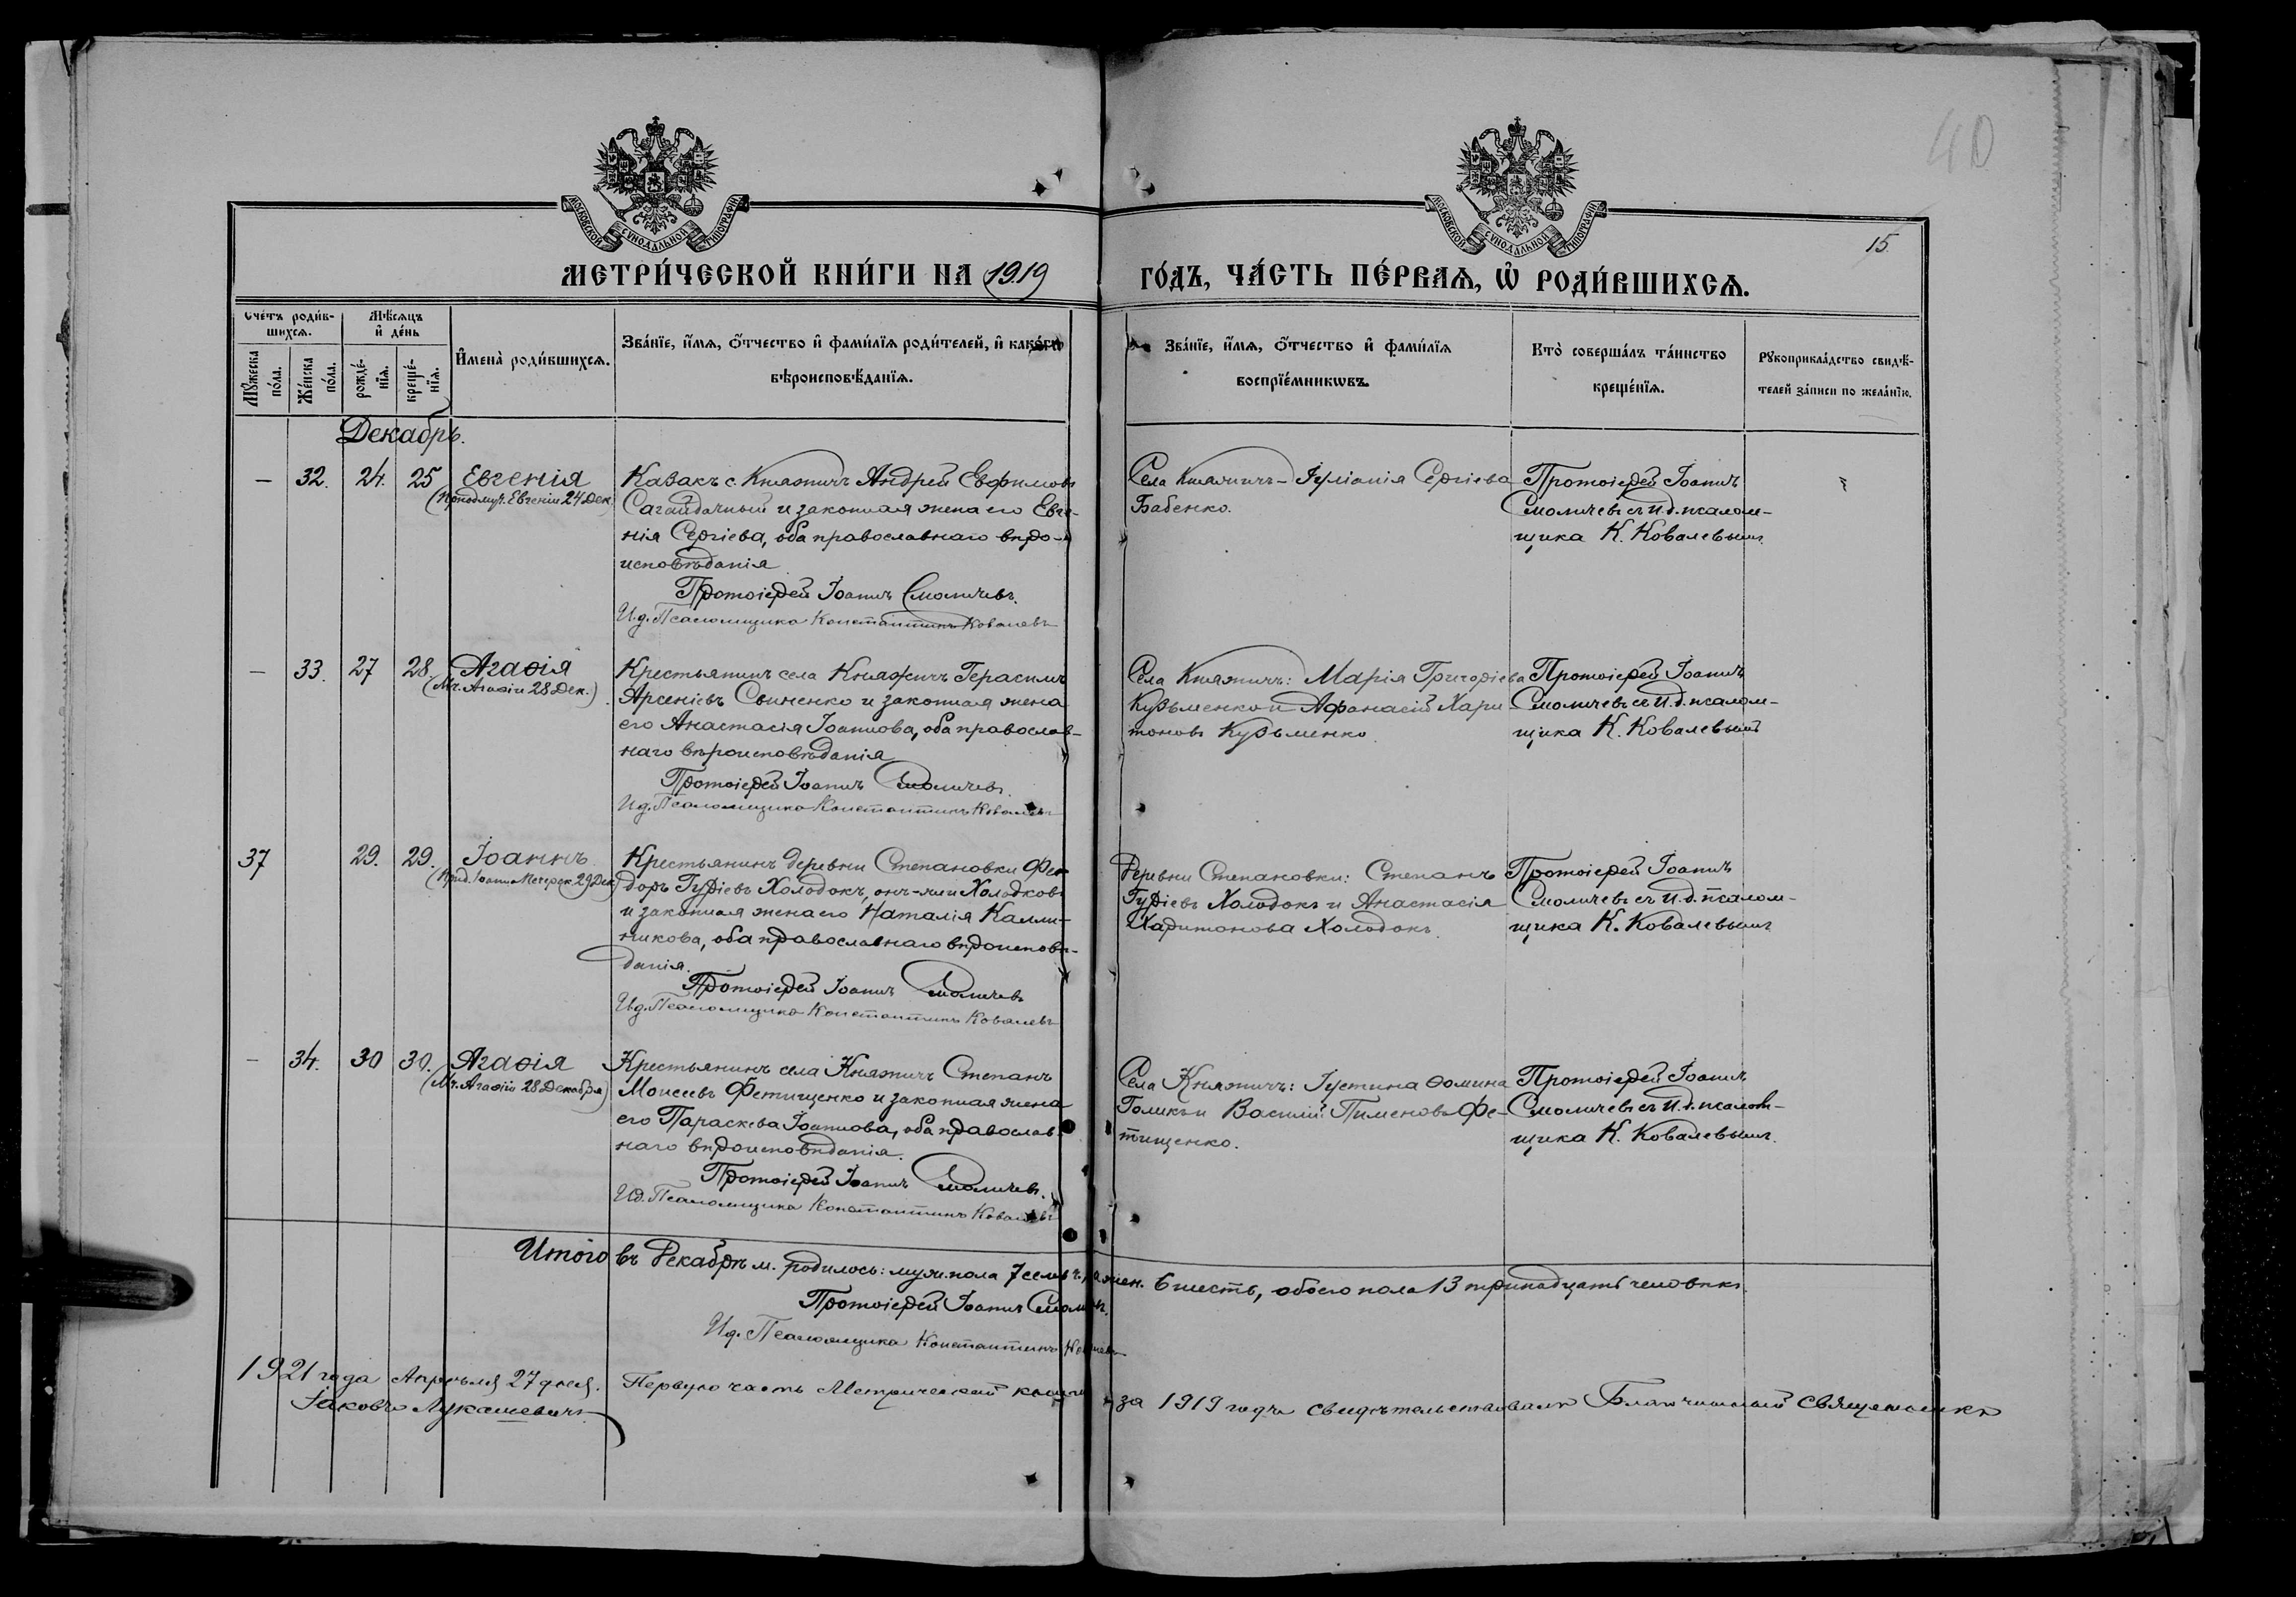 40
15
МОСКОВСКОЙ СѴНОДАЛЬНОЙ ТИПОГРАФІИ
МОСКОВСКОЙ СѴНОДАЛЬНОЙ ТИПОГРАФІИ
МЕТРИ́ЧЕСКОЙ КНИ́ГИ НА 1919
ГО́ДЪ, ЧА́СТЬ ПЕ́РВАѦ, Ѡ҆ РОДИ́ВШИХСѦ.
Сче́тъ роди́в-
шихсѧ.
Мѣ́сѧцъ
и҆ де́нь
Мꙋ́жеска
по́ла.
Же́нска
по́ла.
рожде́-
нїѧ.
креще́-
нїѧ.
И҆мена̀ роди́вшихсѧ.
Зва́нїе, и҆́мѧ, ѻ҆́тчество и҆ фами́лїѧ роди́телей, и҆ како́гѡ
вѣроисповѣ́данїѧ.
Зва́нїе, и҆́мѧ, ѻ҆́тчество и҆ фами́лїѧ
воспрїе́мникѡвъ.
Кто̀ соверша́лъ та́инство
креще́нїѧ.
Рꙋкоприкла́дство свидѣ́-
телей за́писи по жела́нїю.
Декабрь.
— 32. 24. 25 Евгенія
(Преподмуч. Евгеніи 24 Дек.)
Казакъ с. Княжичъ Андрей Евфимовъ
Сагайдачный и законная жена его Евге-
нія Сергіева, оба православнаго вѣро-
исповѣданія
Протоіерей Іоаннъ Смоличевъ.
И.д. Псаломщика Константинъ Ковалевъ
Села Княжичъ – Іуліанія Сергіева
Бабенко.
Протоіерей Іоаннъ
Смоличевъ съ и.д. псалом-
щика К. Ковалевымъ.
— 33. 27 28. Агаѳія
(Мч. Агаѳіи 28 Дек.)
Крестьянинъ села Княжичъ Герасимъ
Арсеніевъ Свиненко и законная жена
его Анастасія Іоаннова, оба православ-
наго вѣроисповѣданія
Протоіерей Іоаннъ Смоличевъ.
И.д. Псаломщика Константинъ Ковалевъ
Села Княжичъ: Марія Григоріева
Кузьменко и Афанасій Хари-
тоновъ Кузьменко.
Протоіерей Іоаннъ
Смоличевъ съ и.д. псалом-
щика К. Ковалевымъ
37 29. 29. Іоаннъ
29 Дек.)
Крестьянинъ деревни Степановки Фео-
доръ Гуріевъ Холодокъ, онъ-же и Холодковъ
и законная жена его Наталія Калли-
никова, оба православнаго вѣроисповѣ-
данія.
Протоіерей Іоаннъ Смоличевъ
И.д. Псаломщика Константинъ Ковалевъ
Деревни Степановки: Степанъ
Гуріевъ Холодокъ и Анастасія
Харитонова Холодокъ.
Протоіерей Іоаннъ
Смоличевъ съ и.д. псалом-
щика К. Ковалевымъ
— 34. 30 30. Агаѳія
(Мч. Агаѳіи 28 Декабря)
Крестьянинъ села Княжичъ Степанъ
Моисеевъ Фетищенко и законная жена
его Параскева Іоаннова, оба православ-
наго вѣроисповѣданія.
Протоіерей Іоаннъ Смоличевъ.
И.д. Псаломщика Константинъ Ковалевъ
Села Княжичъ: Іустина Ѳомина
Голикъ и Василій Пименовъ Фе-
тищенко.
Протоіерей Іоаннъ
Смоличевъ съ и.д. псалом-
щика К. Ковалевымъ.
Итого въ Декабрѣ м. родилось: муж. пола 7 семь ч., а жен. 6 шесть, обоего пола 13 тринадцать человѣкъ.
Протоіерей Іоаннъ
И.д. Псаломщика Константинъ Ковалевъ
1921 года Апрѣля 27 дня. Первую часть Метрической книги за 1919 годъ свидѣтельствовалъ Благочинный священникъ
Іаковъ Лукашевичъ